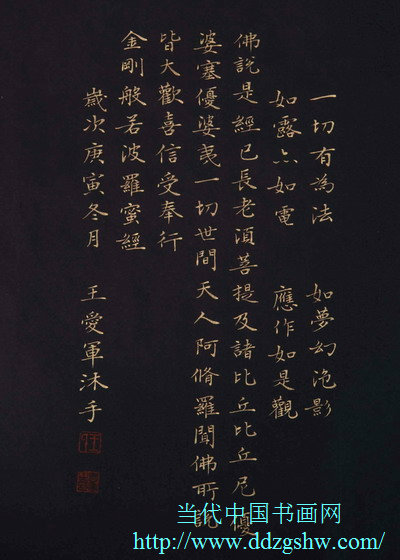 一切有為法 如夢幻泡影
如露亦如電 應作如是觀
佛說是經已長老須菩提及諸比丘比丘尼優
婆塞優婆夷一切世間天人阿脩羅聞佛所說
皆大歡喜信受奉行
金剛般若波羅蜜經
歲次庚寅冬月 王愛軍沐手
当代中国书画网
http://www.ddzgshw.com/